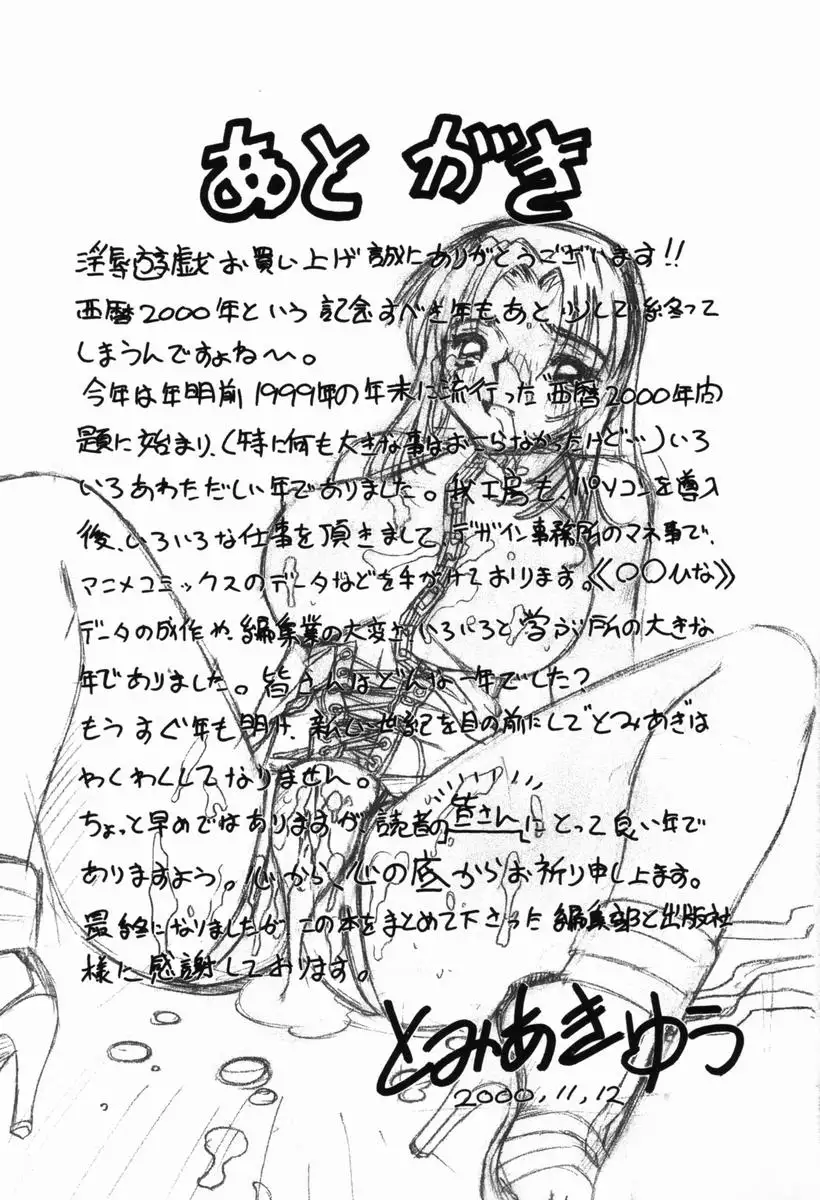 あとがき
淫辱遊戯お買い上げ誠にありがとうございます!!
西暦2000年という記念すべき年も、あと少しで終って
しまうんですよね〜。
今年は年明前1999年の年末に流行った西暦2000年問
題に始まり、(特に何も大きな事はおこらなかったけど…)いろ
いろあわただしい年でありました。我工房も、パソコンを導入
後、いろいろな仕事を頂きまして、デザイン事務所のマネ事で、
マニメコミックスのデータなどを手がけております。《〇〇ひな》
データの成作や、編集業の大変さいろいろと学ぶ所の大きな
年でありました。皆さんはどんな一年でした?
もうすぐ年も明け、新しい世紀を目の前にしてとみあきは
わくわくしてなりません。
ちょっと早めではありますが読者の皆さんにとって良い年で
ありますよう。心から、心の底からお祈り申し上ます。
最終になりましたが この本をまとめて下さった編集部と出版社
様に感謝しております。
とみあきゆう
2000,11,12